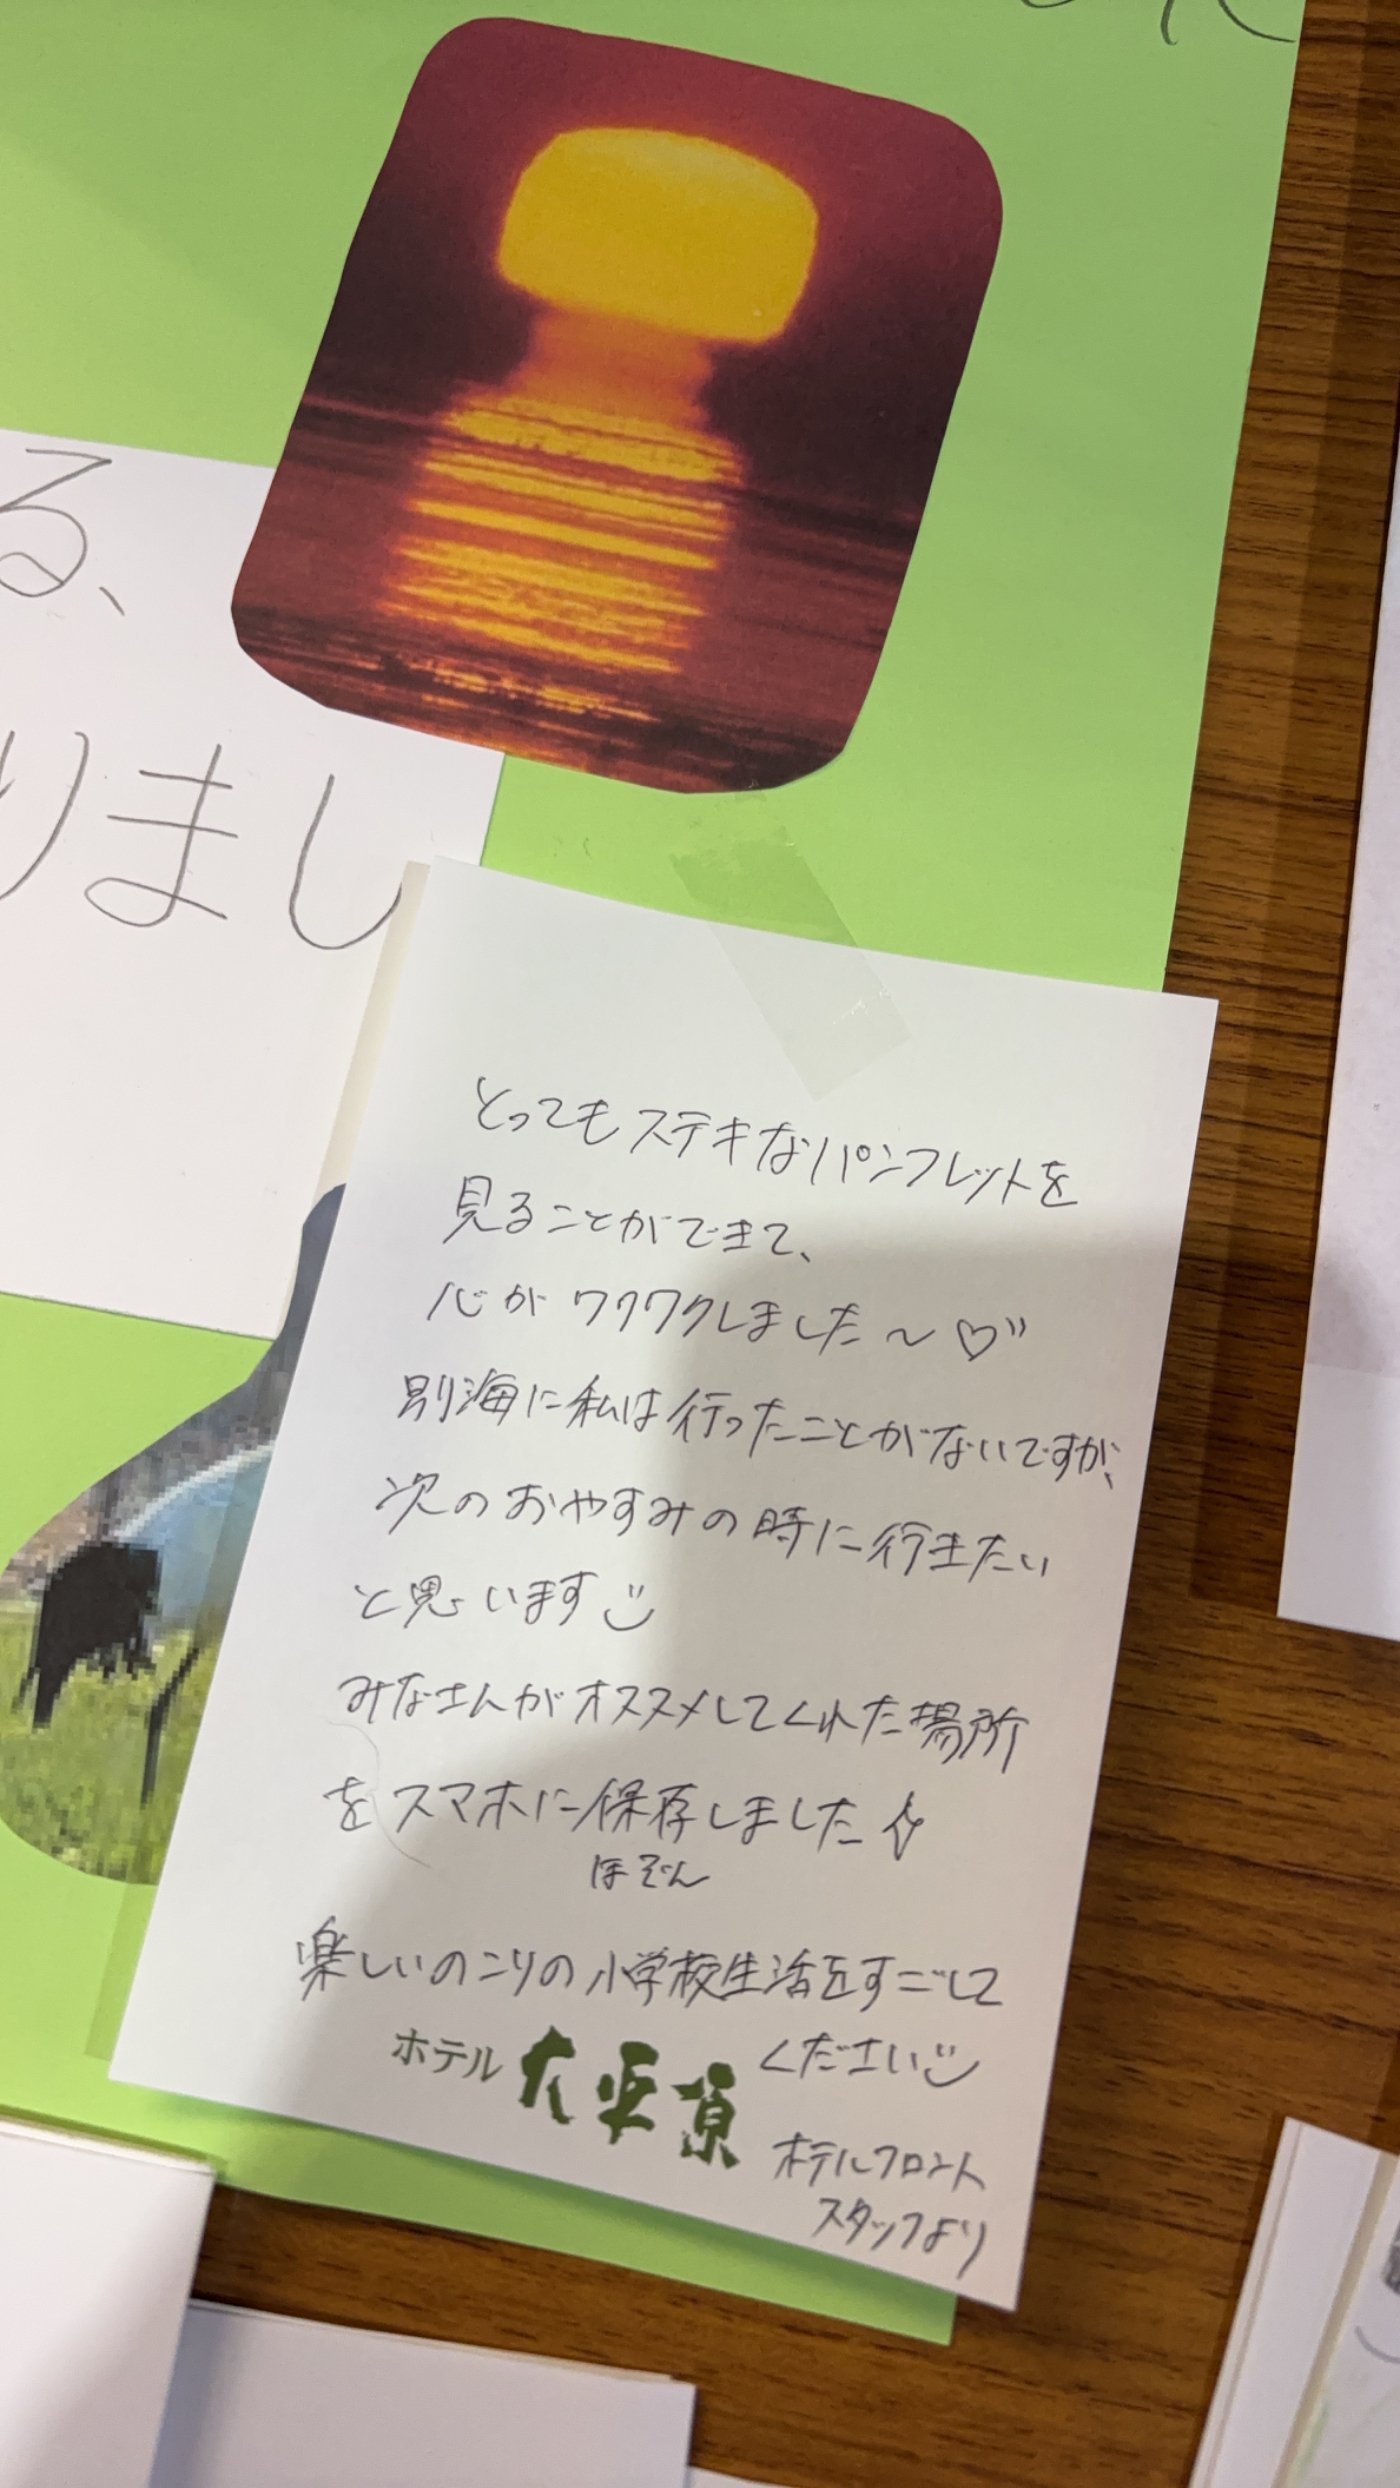 る、
りまし
とってもステキなパンフレットを
見ることができて、
心がワクワクしました～♡"
別海に私は行ったことがないですが、
次のおやすみの時に行きたい
と思います
みなさんがオススメしてくれた場所
をスマホに保存しました
ほぞん
楽しいのこりの小学校生活をすごして
ください
ホテル 大平原
ホテルフロント
スタッフより